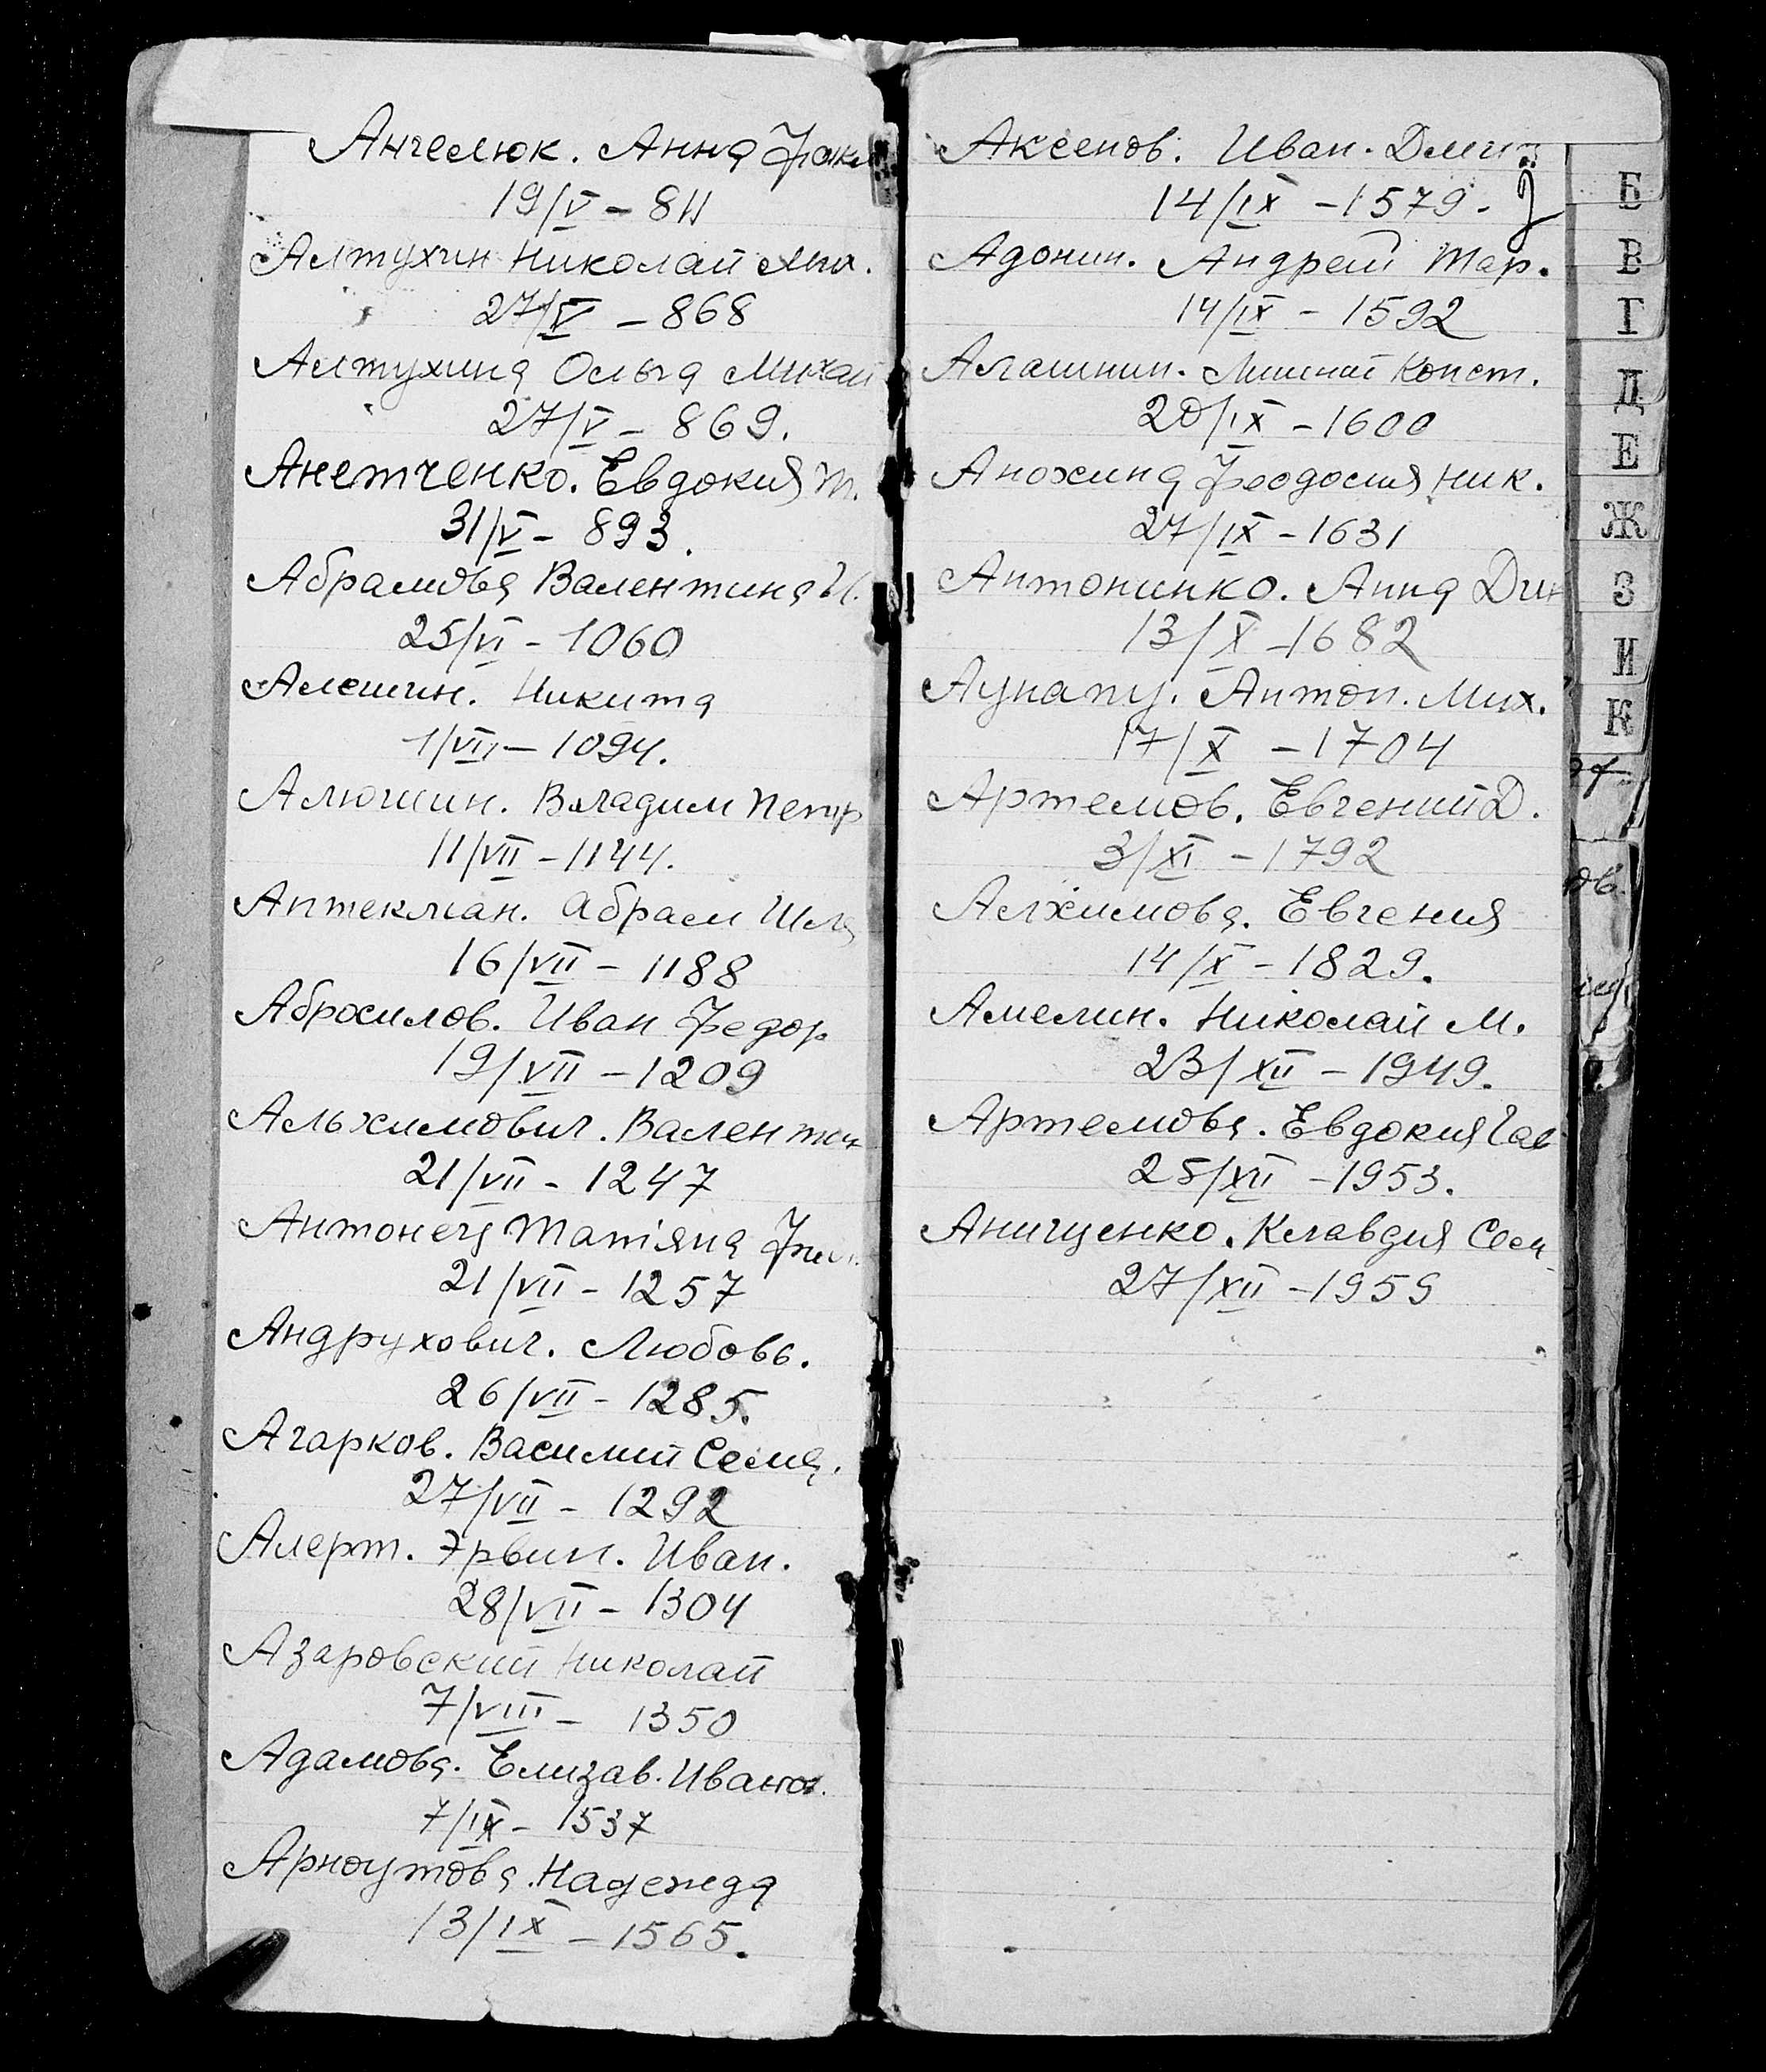 Ангелюк. Анна
19/V – 811
Алтухин Николай Мих.
27/V – 868
Алтухина Ольга Михай
27/V – 869.
Анетченко. Евдокия Т.
31/V – 893.
Абрамова Валентина И.
25/VI – 1060
Алешин. Никита
1/VII – 1094.
Алюшин. Владим Петр
11/VII – 1144.
Аптекман. Абрам
16/VII – 1188
Абросилов. Иван Федор
19/VII – 1209
Альхимович. Валентин
21/VII – 1247
Антонец Татіяна
21/VII – 1257
Андрухович. Любовь.
26/VII – 1285.
Агарков. Василий Семе.
27/VII – 1292
Алерт. Эрвин. Иван.
28/VII – 1304
Азаровский Николай
7/VIII – 1350
Адамова. Елизав. Иванов.
7/IX – 1537
Арноутова. Надежда
13/IX – 1565.
Аксенов. Иван. Дмит
14/IX – 1579.
Адонин. Андрей Мар.
14/IX – 1592
Агашкин. Конст.
20/IX – 1600
Анохина Феодосия Ник.
27/IX – 1631
Антонинко. Анна
13/X – 1682
Аупапу. Антон. Мих.
17/X – 1704
Артемов. Евгений Д.
3/XI – 1792
Алхимова. Евгения
14/X – 1829.
Амелин. Николай М.
23/XII – 1949.
Артемова. Евдокия Гав
25/XII – 1953.
Анищенко. Клавдия Сем
27/XII – 1959
Б
В
Г
Д
Е
Ж
З
И
К